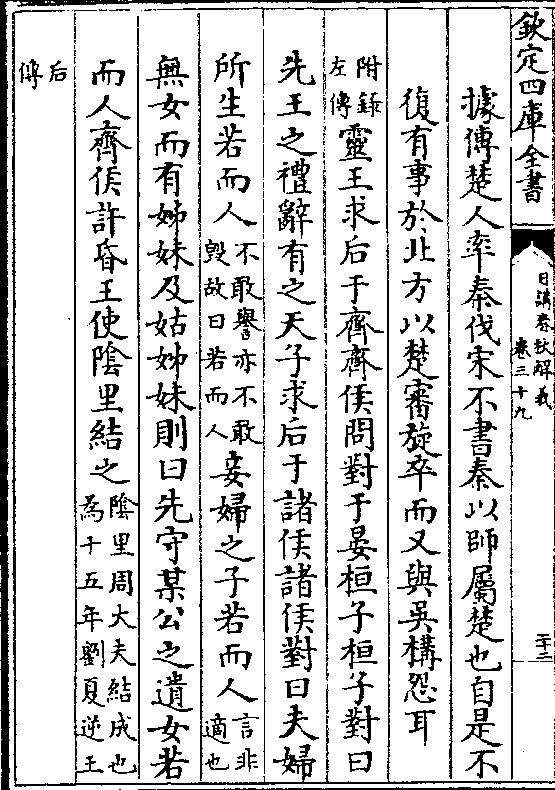 欽定四庫全書
日講春秋解義
卷三十九
二十二
據傳楚人率秦伐宋不書秦以師屬楚也自是不
復有事於北方以楚審旋卒而又與吳構怨耳
附錄
左傳
靈王求后于齊齊侯問對于晏桓子桓子對曰
先王之禮辭有之天子求后于諸侯諸侯對曰夫婦
所生若而人
不敢譽亦不敢
毀故曰若而人
妾婦之子若而人
言非
適也
無女而有姊妹及姑姊妹則曰先守某公之遺女若
而人齊侯許昏王使陰里結之
陰里周大夫結成也
為十五年劉夏逆王
后
傳